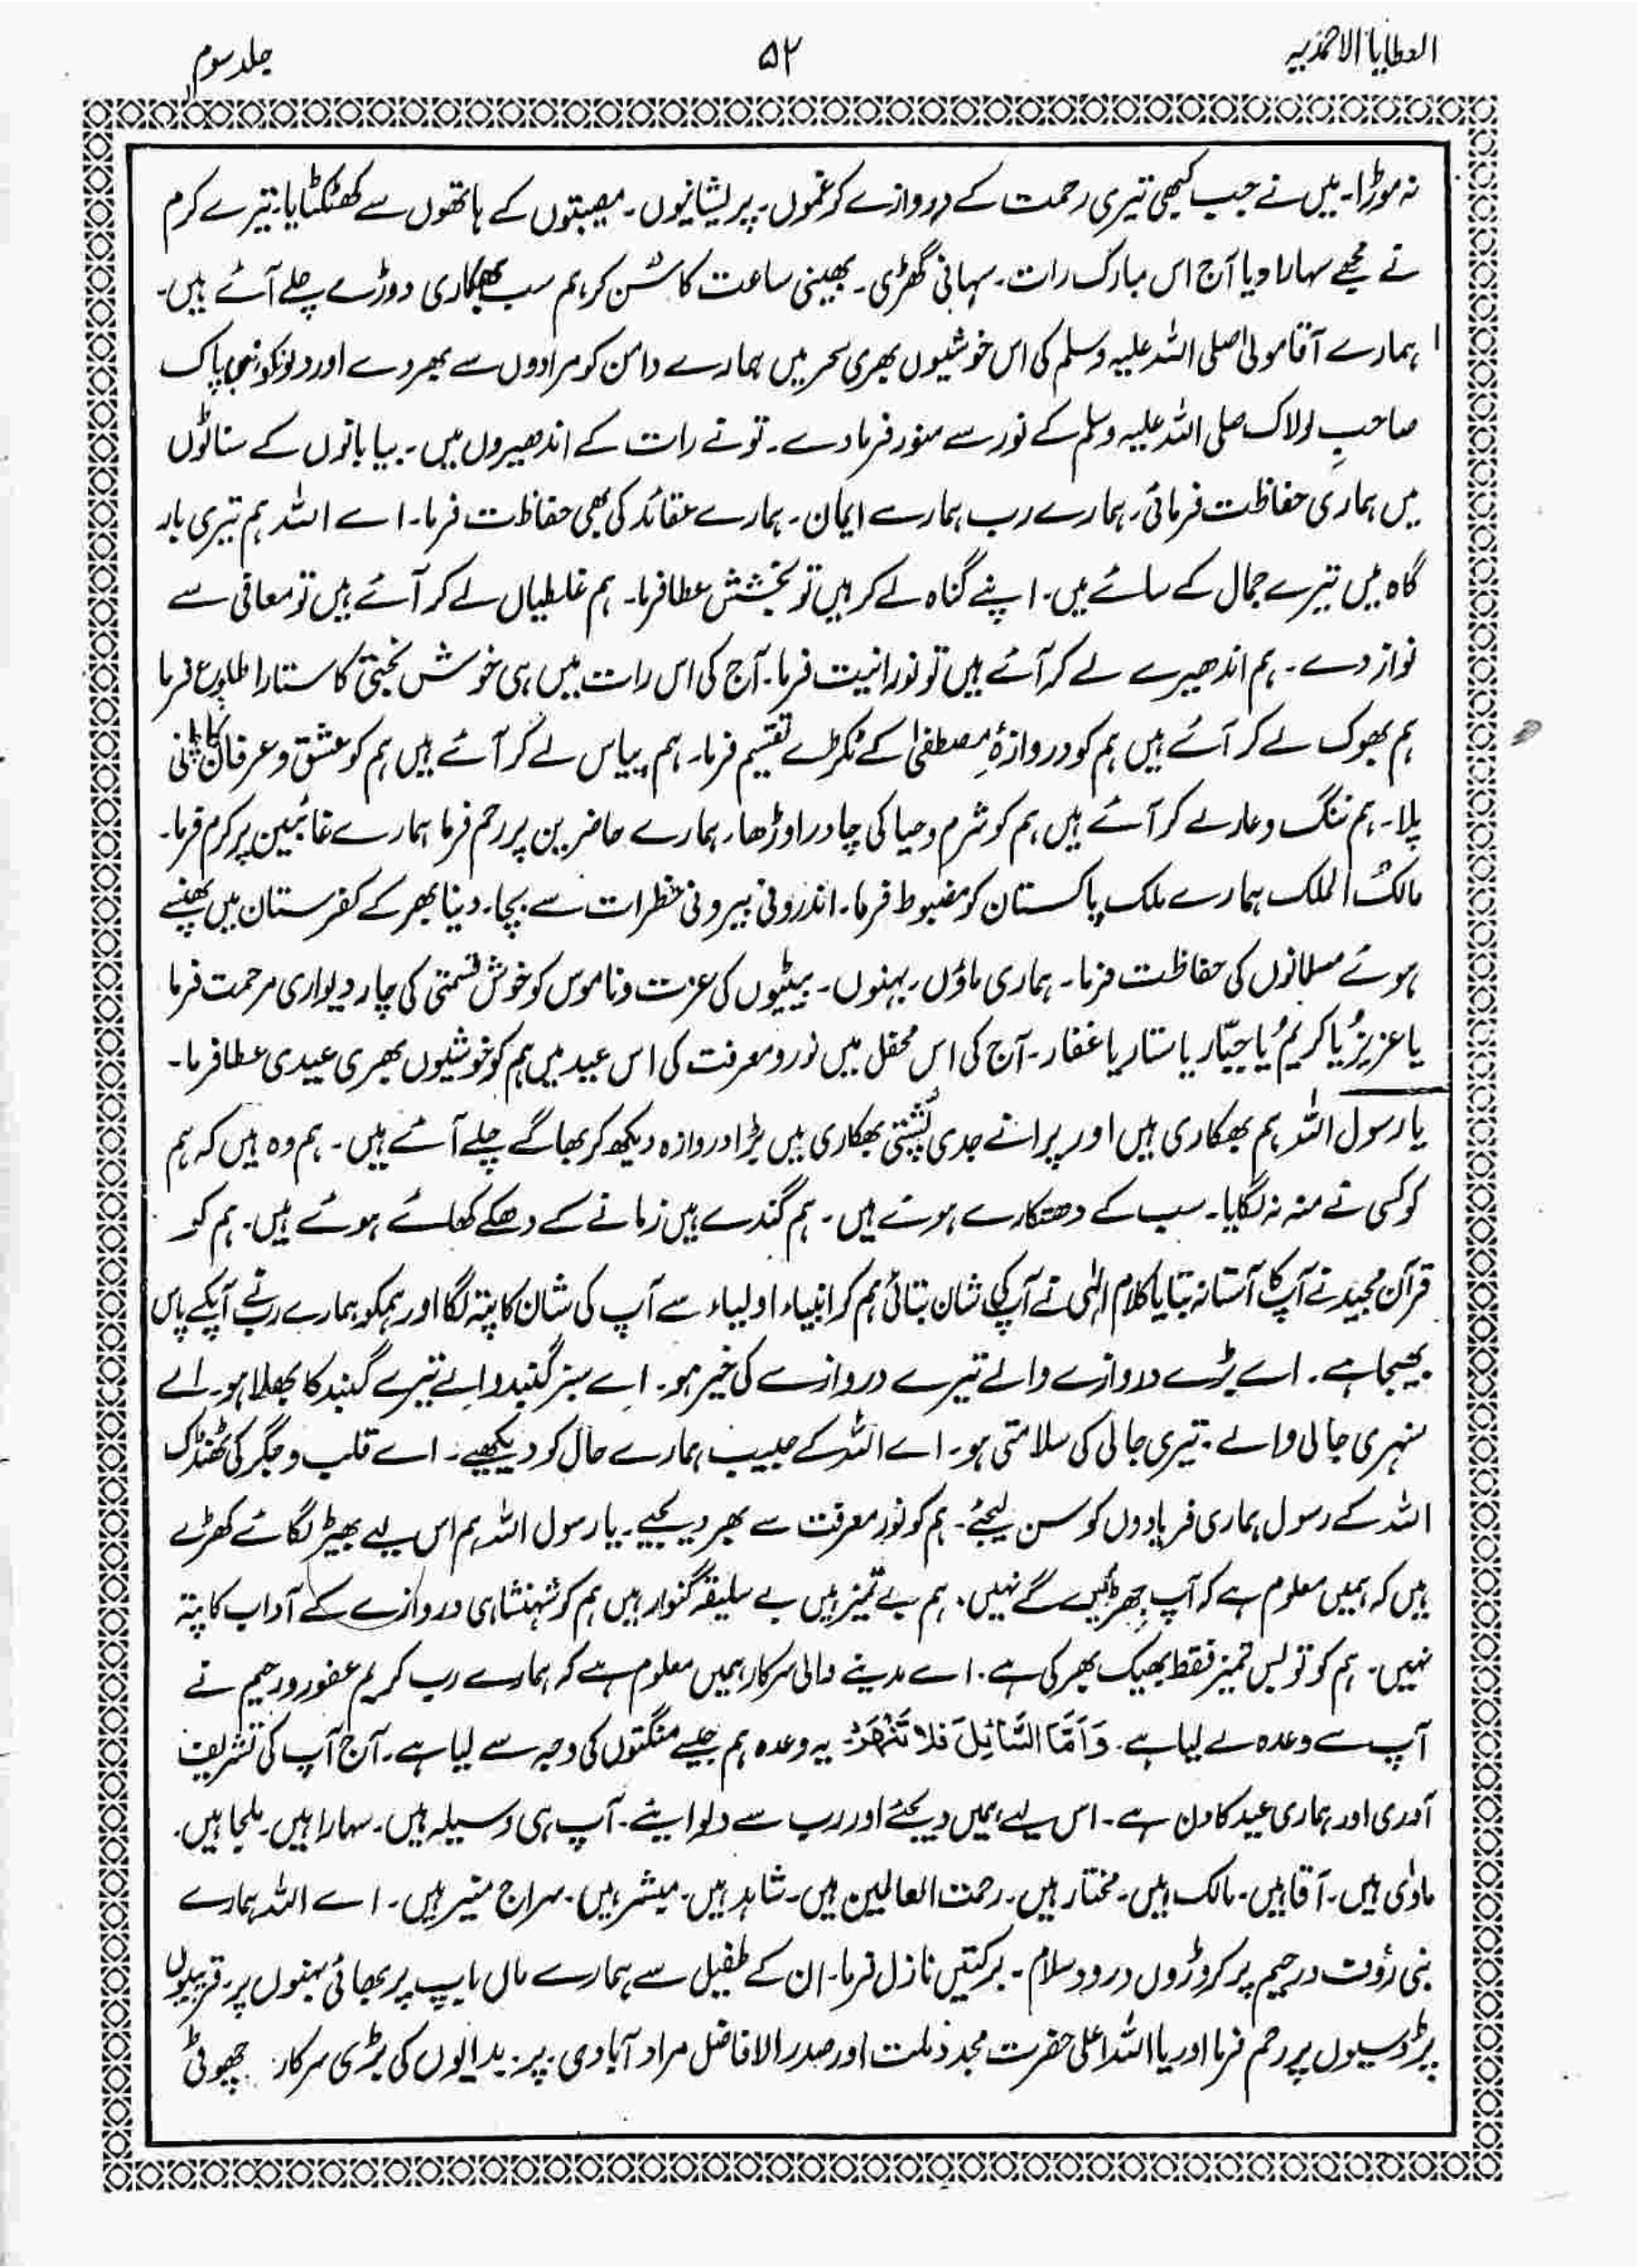 العطایا الاحمدیہ
۵۲
جلد سوم
نہ موڑا۔ میں نے جب کبھی تیری رحمت کے دروازے کو غموں۔ پریشانیوں۔ مصیبتوں کے ہاتھوں سے کھٹکٹایا۔ تیرے کرم
نے مجھے سہارا دیا آج اس مبارک رات۔ سہانی گھڑی۔ بھینی ساعت کا سُن کر ہم سب بھکاری دوڑے چلے آئے ہیں۔
ہمارے آقا مولیٰ صلی اللہ علیہ وسلم کی اس خوشیوں بھری سحر میں ہمارے دامن کو مرادوں سے بھر دے اور دلونکو نبی پاک
صاحبِ لولاک صلی اللہ علیہ وسلم کے نور سے منور فرما دے۔ تو نے رات کے اندھیروں میں۔ بیابانوں کے سناٹوں
میں ہماری حفاظت فرمائی۔ ہمارے رب ہمارے ایمان۔ ہمارے عقائد کی بھی حفاظت فرما۔ اے اللہ ہم تیری بار
گاہ میں تیرے جمال کے سائے میں۔ اپنے گناہ لے کر ہیں تو بخشش عطا فرما۔ ہم غلطیاں لے کر آئے ہیں تو معافی سے
نواز دے۔ ہم اندھیرے لے کر آئے ہیں تو نورانیت فرما۔ آج کی اس رات میں ہی خوش بختی کا ستارا طلوع فرما
ہم بھوک لے کر آئے ہیں ہم کو دروازۂ مصطفیٰ کے ٹکڑے تقسیم فرما۔ ہم پیاس لے کر آئے ہیں ہم کو عشق و عرفان کا پانی
پلا۔ ہم ننگ و عار لے کر آئے ہیں ہم کو شرم و حیا کی چادر اوڑھا۔ ہمارے حاضرین پر رحم فرما ہمارے غائبین پر کرم فرما۔
مالکُ الملک ہمارے ملک پاکستان کو مضبوط فرما۔ اندرونی بیرونی خطرات سے بچا۔ دنیا بھر کے کفرستان میں پھنسے
ہوئے مسلمانوں کی حفاظت فرما۔ ہماری ماؤں۔ بہنوں۔ بیٹیوں کی عزت و ناموس کو خوش قسمتی کی چار دیواری مرحمت فرما
یا عزیزُ یا کریمُ یا جبّار یا ستار یا غفار۔ آج کی اس محفل میں نور و معرفت کی اس عید میں ہم کو خوشیوں بھری عیدی عطا فرما۔
یا رسول اللہ ہم بھکاری ہیں اور پرانے جدی پُشتی بھکاری ہیں بڑا دروازہ دیکھ کر بھاگے چلے آئے ہیں۔ ہم وہ ہیں کہ ہم
کو کسی نے منہ نہ لگایا۔ سب کے دھتکارے ہوئے ہیں۔ ہم گندے ہیں زمانے کے دھکے کھائے ہوئے ہیں۔ ہم کو
قرآن مجید نے آپ کا آستانہ بتایا کلام الٰہی نے آپ کی شان بتائی ہم کو انبیاء اولیاء سے آپ کی شان کا پتہ لگا اور ہمکو ہمارے رب نے آپکے پاس
بھیجا ہے۔ اے بڑے دروازے والے تیرے دروازے کی خیر ہو۔ اے سبز گنبد والے تیرے گنبد کا بھلا ہو۔ اے
سنہری جالی والے۔ تیری جالی کی سلامتی ہو۔ اے اللہ کے حبیب ہمارے حال کو دیکھیے۔ اے قلب و جگر کی ٹھنڈک
اللہ کے رسول ہماری فریادوں کو سن لیجئے۔ ہم کو نور معرفت سے بھر دیجیے۔ یا رسول اللہ ہم اس لیے بھیڑ لگائے کھڑے
ہیں کہ ہمیں معلوم ہے کہ آپ جِھڑکیں گے نہیں۔ ہم بے تمیز ہیں بے سلیقہ گنوار ہیں ہم کو شہنشاہی دروازے کے آداب کا پتہ
نہیں۔ ہم کو تو بس تمیز فقط بھیک بھر کی ہے۔ اے مدینے والی سرکار ہمیں معلوم ہے کہ ہمارے رب کریم غفور و رحیم نے
آپ سے وعدہ لے لیا ہے۔ وَاَمَّا السَّائِلَ فَلَا تَنْهَرْ۔ یہ وعدہ ہم جیسے منگتوں کی وجہ سے لیا ہے۔ آج آپ کی تشریف
آوری اور ہماری عید کا دن ہے۔ اس لیے ہمیں دیجئے اور رب سے دلوائیے۔ آپ ہی وسیلہ ہیں۔ سہارا ہیں۔ ملجا ہیں۔
ماویٰ ہیں۔ آقا ہیں۔ مالک ہیں۔ مختار ہیں۔ رحمت العالمین ہیں۔ شاہد ہیں۔ مبشر ہیں۔ سراج منیر ہیں۔ اے اللہ ہمارے
نبی رؤف و رحیم پر کروڑوں درود سلام۔ برکتیں نازل فرما۔ ان کے طفیل سے ہمارے ماں باپ پر بھائی بہنوں پر۔ قریبیوں
پڑوسیوں پر رحم فرما اور یا اللہ اعلیٰ حضرت مجدد ملت اور صدر الافاضل مراد آبادی۔ پر۔ بدایوں کی بڑی سرکار۔ چھوٹی